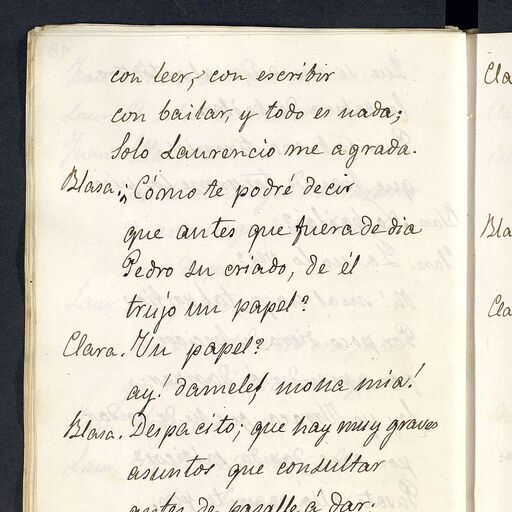 con leer, con escribir
con bailar, y todo es nada;
Solo Laurencio me agrada.
Blasa. ¿Cómo te podré decir
que antes que fuera de dia
Pedro su criado, de él
trujo un papel?
Clara. Un papel?
ay! damele, mona mia!
Blasa. Despacito; que hay muy graves
asuntos que consultar
antes de pasalle á dar:
Cla
Bla
Cla